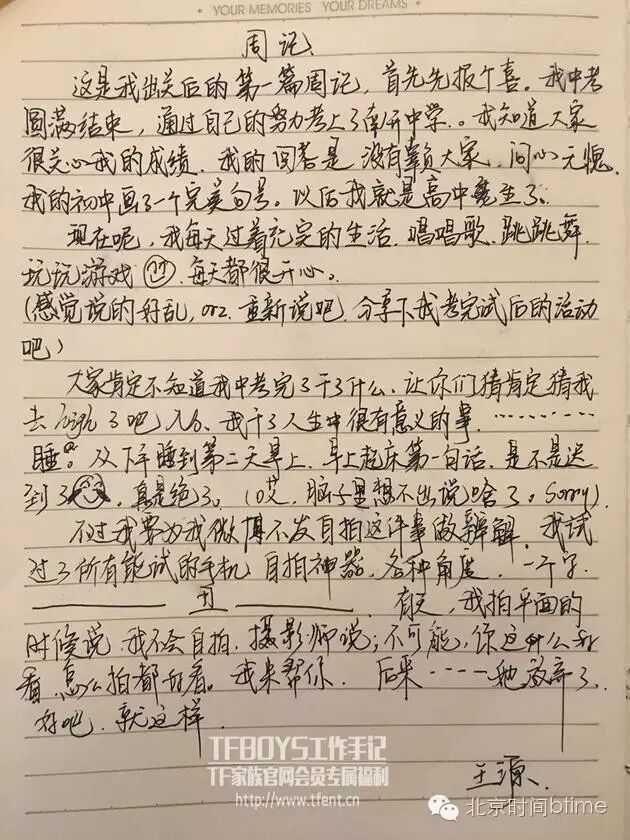 YOUR MEMORIES YOUR DREAMS
周记
这是我出关后的第一篇周记,首先先报个喜。我中考
圆满结束,通过自己的努力考上了南开中学。。我知道大家
很关心我的成绩.我的回答是没有辜负大家,问心无愧.
我的初中画了一个完美句号。以后我就是高中
生了。
现在呢,我每天过着充实的生活.唱唱歌、跳跳舞.
玩玩游戏 每天都很开心。
(感觉说的好乱,orz.重新说吧.分享下我考完试后的活动
吧)
大家肯定不知道我中考完了干了什么.让你们猜肯定猜我
去 了吧 .我干了人生中很有意义的事.…………
睡。从下午睡到第二天早上.早上起床第一句话.是不是迟
到了 ,真是绝了。(哎,脑子里想不出说啥了。Sorry).
不过我要为我微博不发自拍这件事做辩解.我试
过了所有能试的手机 自拍神器.各种角度.一个字.
丑 .有天,我拍平面的
时候说.我不会自拍.摄影师说;不可能,你这什么
看 怎么拍都好看。我来帮你. 后来····她放弃了.
好吧.就这样.
王源.
TFBOYS工作手记
TF家族官网会员专属福利
http://www.tfent.cn
北京时间btime